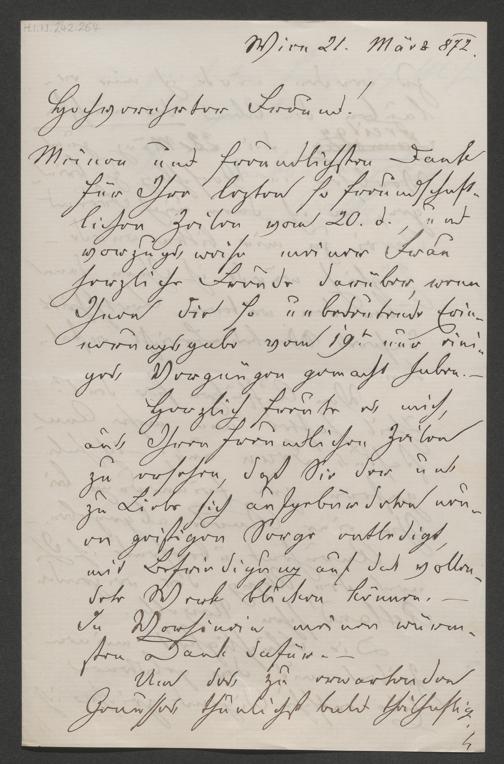 H.I.N. 242.264
Wien 21. März 872.
Hochverehrter Freund!
Meinen und freundlichsten Dank
für Ihre letzten so freundschaft-
lichen Zeilen, vom 20. d., und
vorzugsweise meiner Frau
herzliche Freude darüber, wenn
Ihnen die so unbedeutende Erin-
nerungsgabe vom 19t nur eini-
ges Vergnügen gemacht haben. –
Herzlich freute es mich,
aus Ihren freundlichen Zeilen
zu ersehen, daß Sie der uns
zu Liebe sich aufgebürdeten neu-
en geistigen Sorge entledigt,
mit Befriedigung auf das vollen-
dete Werk blicken können. –
In Vorhinein meinen wärm-
sten Dank dafür. –
Um des zu erwartenden
Genusses thunlichst bald theilhaftig